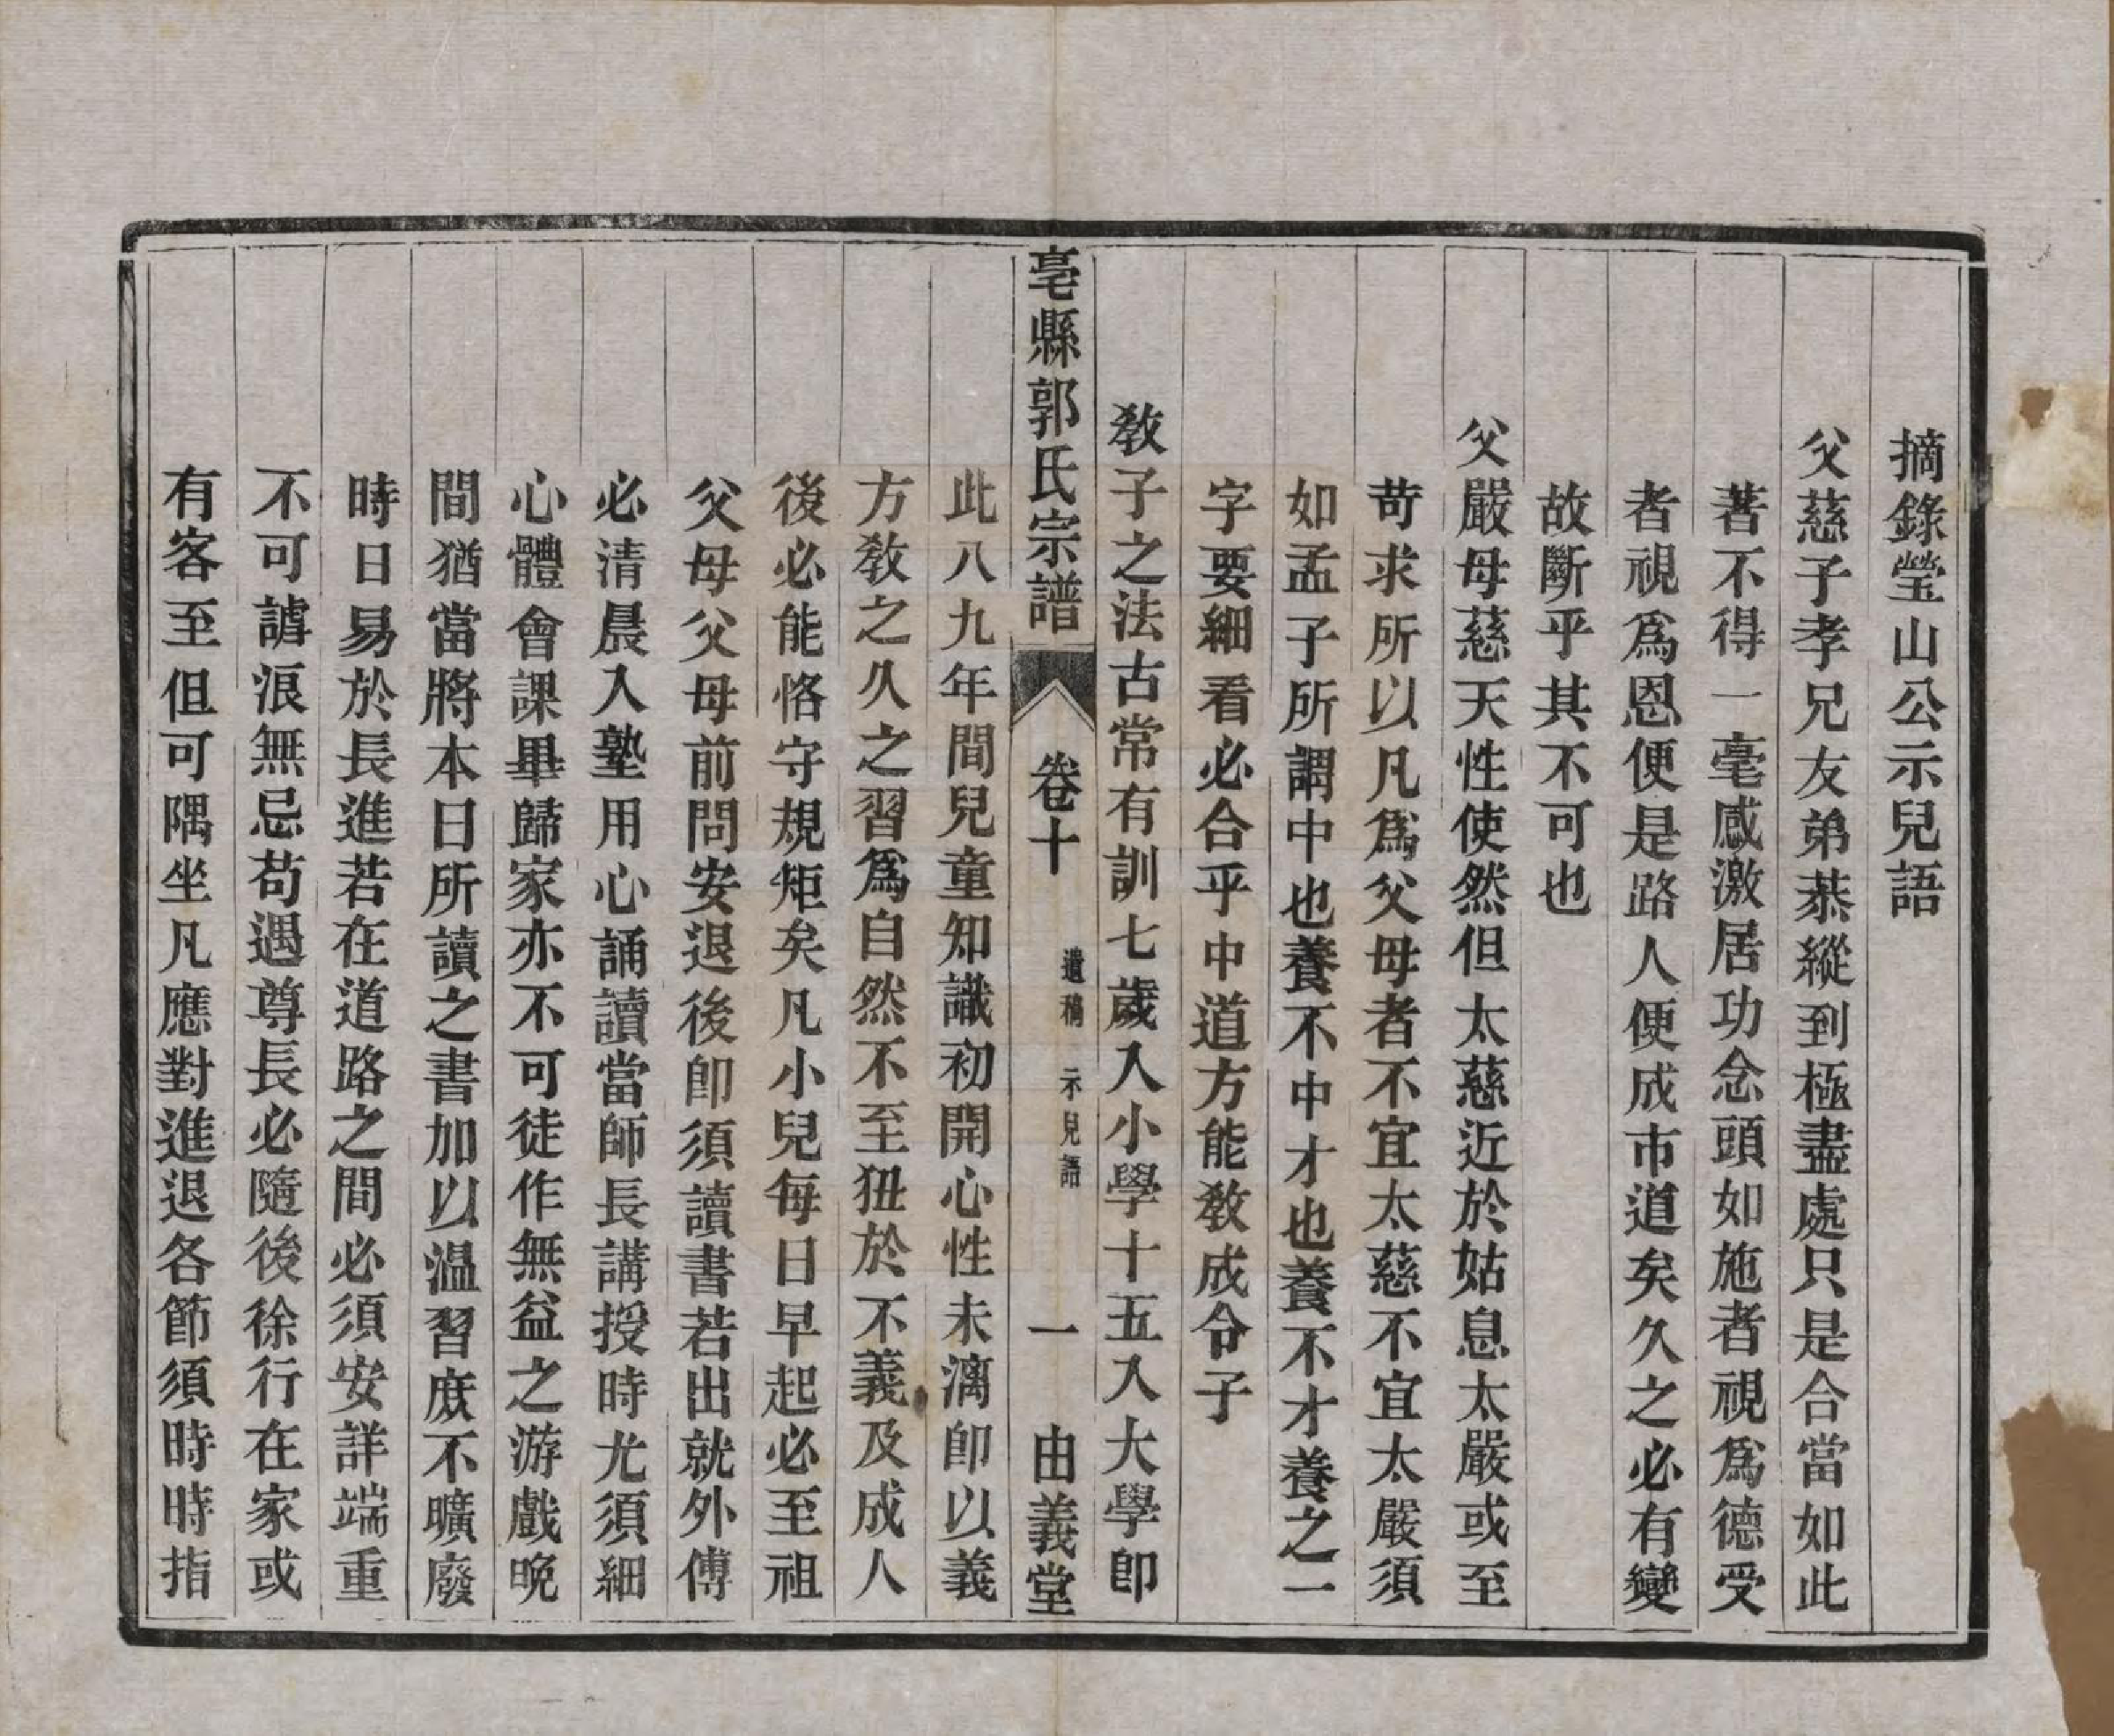 摘錄瑩山公示兒語
父慈子孝兄友弟恭縱到極盡處只是合當如此
著不得一毫感激居功念頭如施者視爲德受
者視爲恩便是路人便成市道矣久之必有變
故斷乎其不可也
父嚴母慈天性使然但太慈近於姑息太嚴或至
苛求所以凡爲父母者不宜太慈不宜太嚴須
如孟子所謂中也養不中才也養不才養之一
字要細看必合乎中道方能敎成令子
敎子之法古常有訓七歲入小學十五入大學卽
亳縣郭氏宗譜 卷十 遺稿 示兒語 一 由義堂
此八九年間兒童知識初開心性未漓卽以義
方敎之久之習爲自然不至狃於不義及成人
後必能恪守規矩矣凡小兒每日早起必至祖
父母父母前問安退後卽須讀書若出就外傅
必清晨入塾用心誦讀當師長講授時尤須細
心體會課畢歸家亦不可徒作無益之游戲晚
間猶當將本日所讀之書加以溫習庶不曠廢
時日易於長進若在道路之間必須安詳端重
不可謔浪無忌苟遇尊長必隨後徐行在家或
有客至但可隅坐凡應對進退各節須時時指